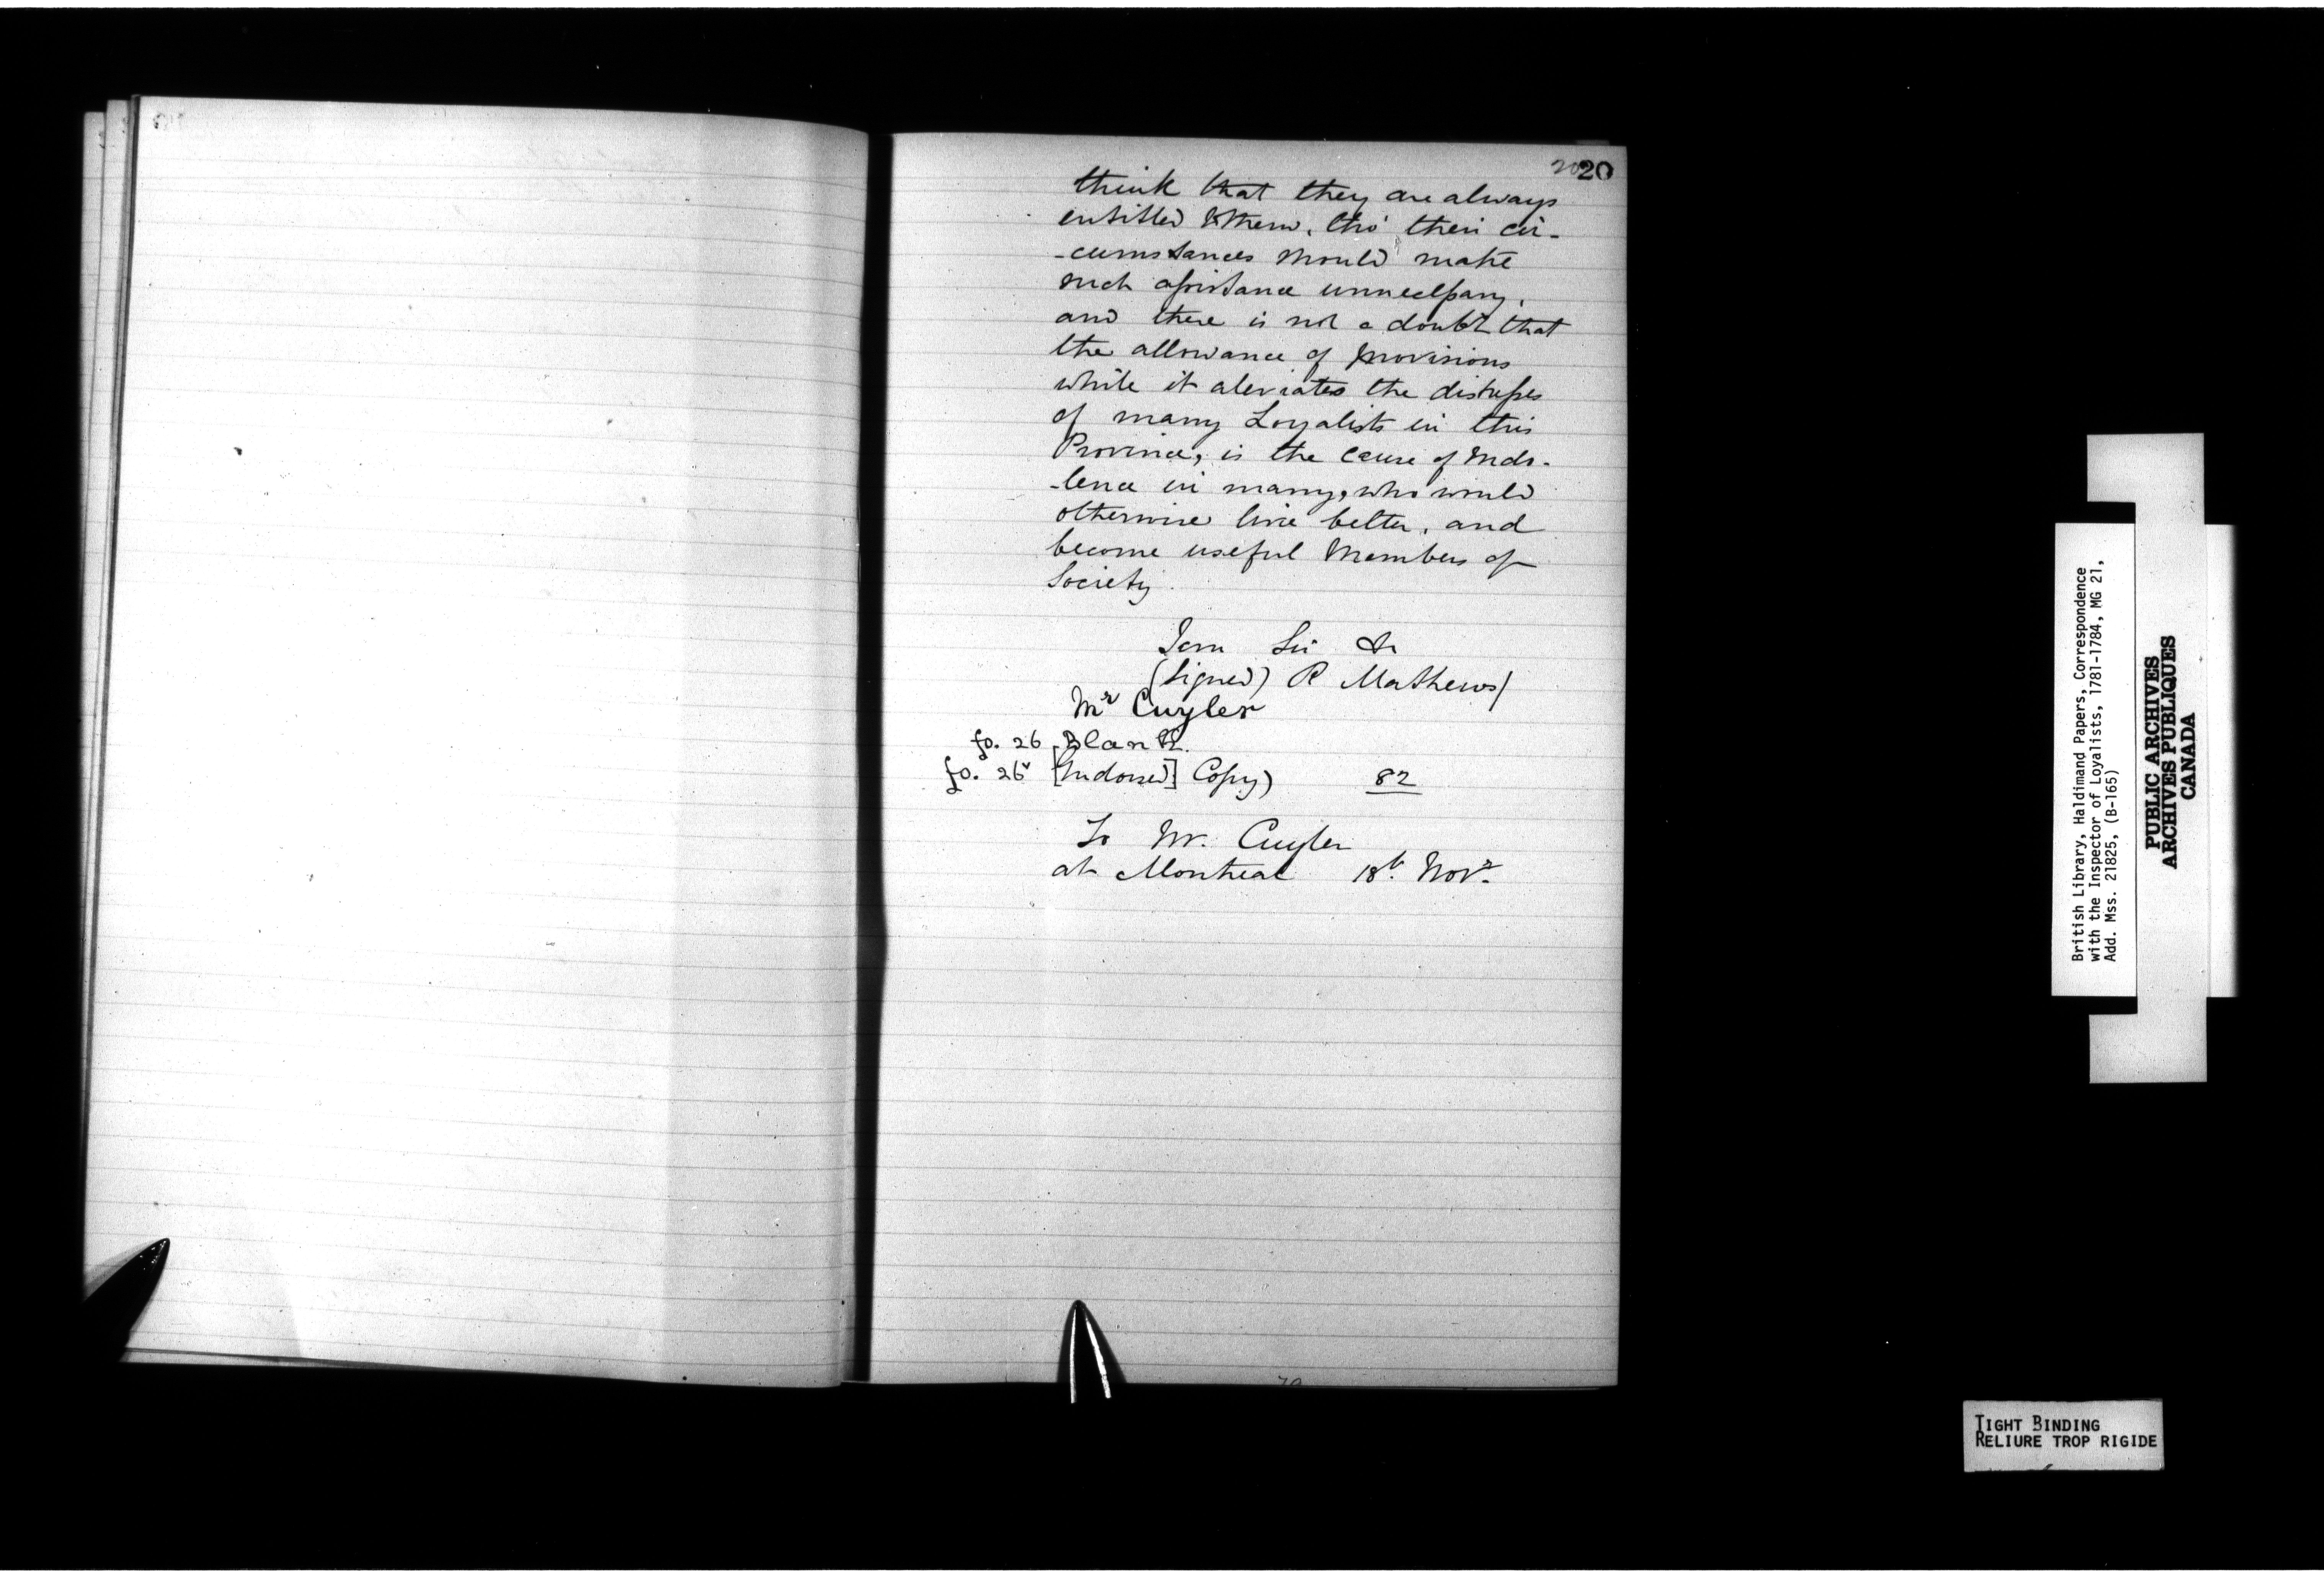 20 20
think that they are always
entitled to them, tho' their cir-
-cumstances should make
such assistance unnecessary,
and there is not a doubt that
the allowance of provisions
while it aleviates the distresses
of many Loyalists in this
Province, is the Cause of Indo-
-lence in many, who would
otherwise live better, and
become useful Members of
Society.
I am Sir &c
(Signed) R Mathews/
Mr Cuyler
fo. 26 Blank.
fo. 26v [Indorsed] Copy) 82
To Mr. Cuyler
at Montreal 18th Novr.
British Library, Haldimand Papers, Correspondence
with the Inspector of Loyalists, 1781-1784, MG 21,
Add. Mss. 21825, (B-165)
PUBLIC ARCHIVES
ARCHIVES PUBLIQUES
CANADA
TIGHT BINDING
RELIURE TROP RIGIDE